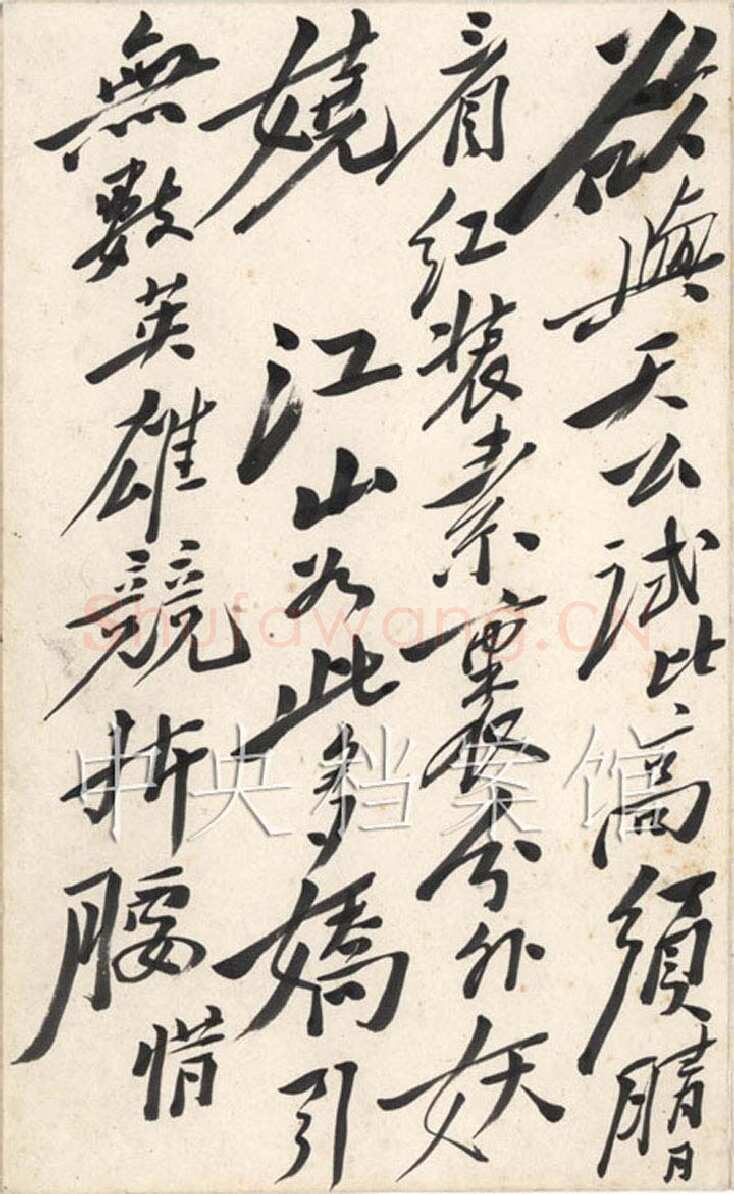 欲與天公試比高須晴日
看红装素裹分外妖
嬈 江山如此多嬌引
無數英雄競折腰惜
Shufawang.CN
中央档案馆